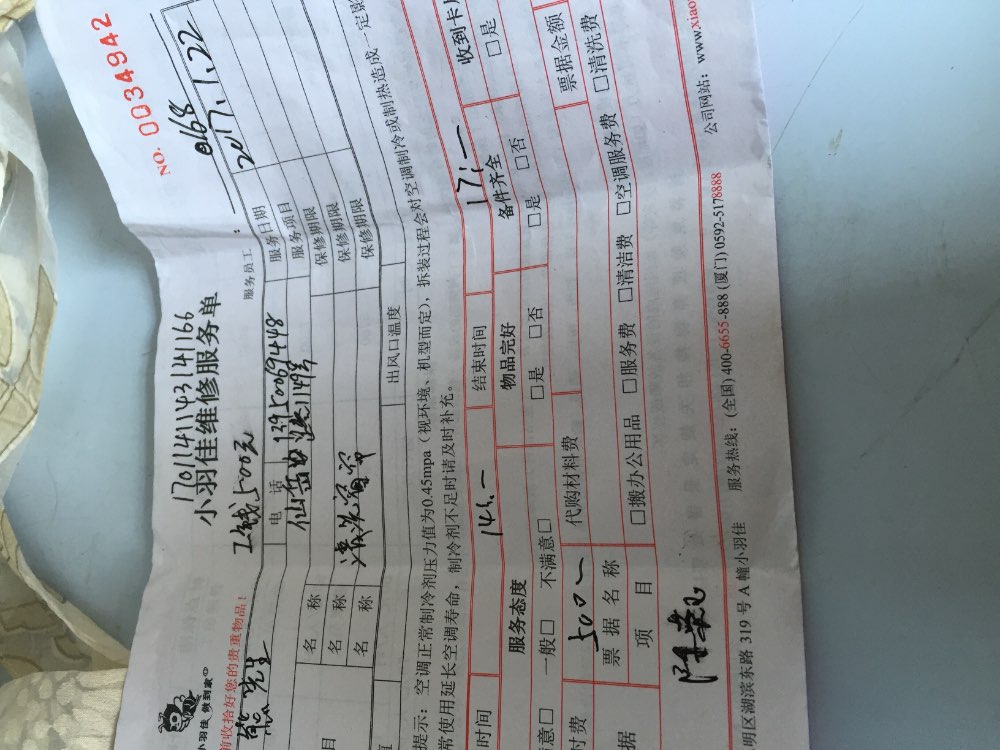 NO. 0034942
17011411431 41166
小羽佳维修服务单
小羽佳 做到家
服务员工： 0168
前收拾好您的贵重物品！ 工钱500元
服务日期 2017.1.22
先生 电话 13950069448 服务项目
仙岳 114号 保修期限
名称 保修期限
名称 清洗窗帘 保修期限
名称
出风口温度
提示：空调正常制冷剂压力值为0.45mpa（视环境、机型而定），拆装过程会对空调制冷或制热造成一定影
常使用延长空调寿命，制冷剂不足时请及时补充。
时间 14：— 结束时间 17：—
服务态度 物品完好 备件齐全 收到卡片
意□ 一般□ 不满意□ □是 □否 □是 □否 □是
付费 500— 代购材料费
据 票据名称 票据金额
项目 □搬办公用品 □服务费 □清洁费 □空调服务费 □清洗费
明区湖滨东路 319 号 A 幢小羽佳 服务热线：(全国) 400-6655-888 (厦门) 0592-5178888 公司网站：www.xiao